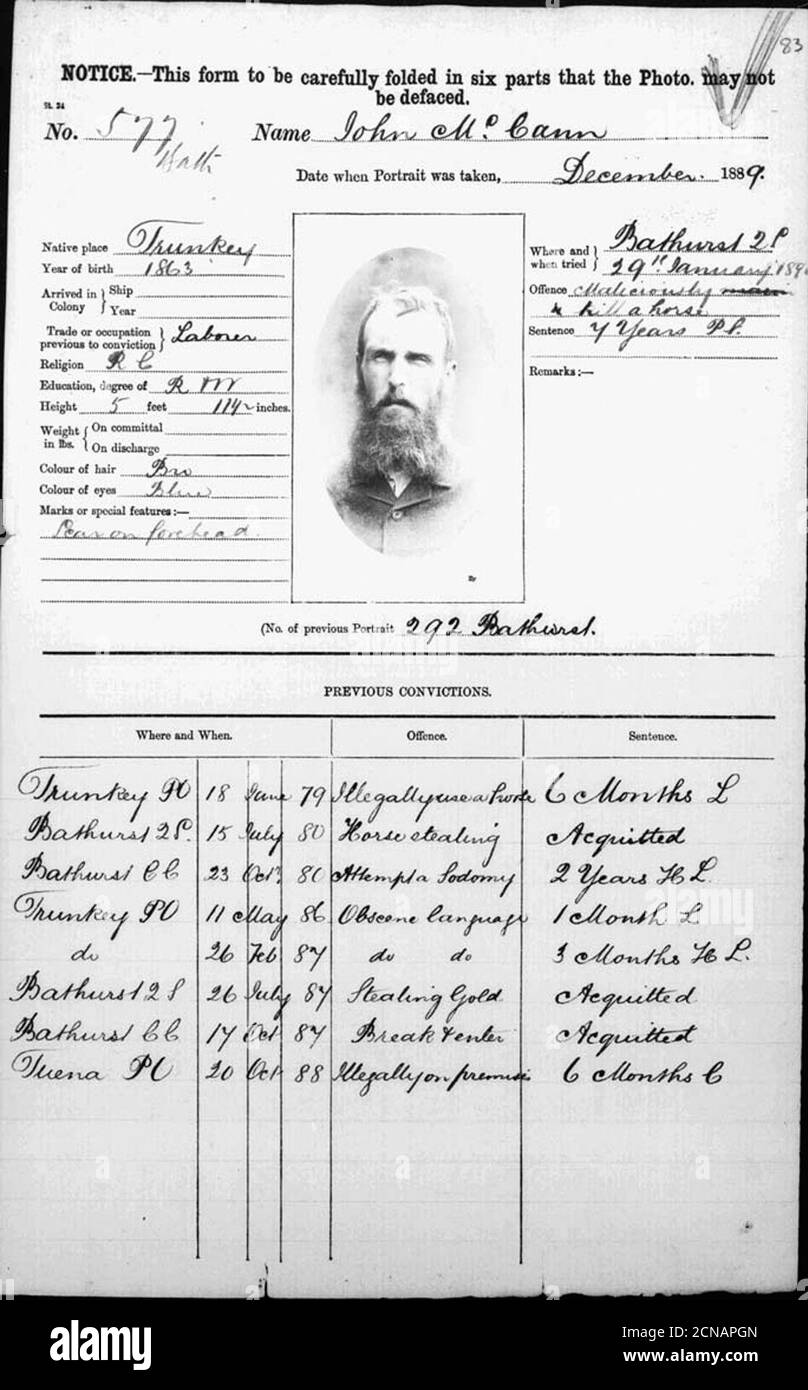 83
NOTICE.—This form to be carefully folded in six parts that the Photo. may not
be defaced.
No. 577 Name John McCann
Date when Portrait was taken, December. 1889.
Native place Trunkey
Year of birth 1863
Arrived in Colony } Ship
Year
Trade or occupation previous to conviction } Laborer
Religion R C
Education, degree of R W
Height 5 feet 11 1/2 inches.
Weight in lbs. { On committal
On discharge
Colour of hair Bro
Colour of eyes Blue
Marks or special features:—
Scar on forehead.
Where and when tried } Bathurst 2 S
29th January 1890
Offence Maliciously
& kill a horse
Sentence 7 Years P S.
Remarks:—
(No. of previous Portrait 292 Bathurst.
PREVIOUS CONVICTIONS.
Where and When. Offence. Sentence.
Trunkey PO 18 June 79 Illegally use a horse 6 Months L
Bathurst 2 S. 15 July 80 Horse stealing Acquitted
Bathurst C C 23 Oct. 80 Attempt a Sodomy 2 Years H L.
Trunkey PO 11 May 86 Obscene language 1 Month L
do 26 Feb 87 do do 3 Months H L.
Bathurst 2 S 26 July 87 Stealing Gold Acquitted
Bathurst C C 17 Oct 87 Break & enter Acquitted
Tuena PO 20 Oct 88 Illegally on premises 6 Months C
alamy
Image ID: 2CNAPGN
www.alamy.com